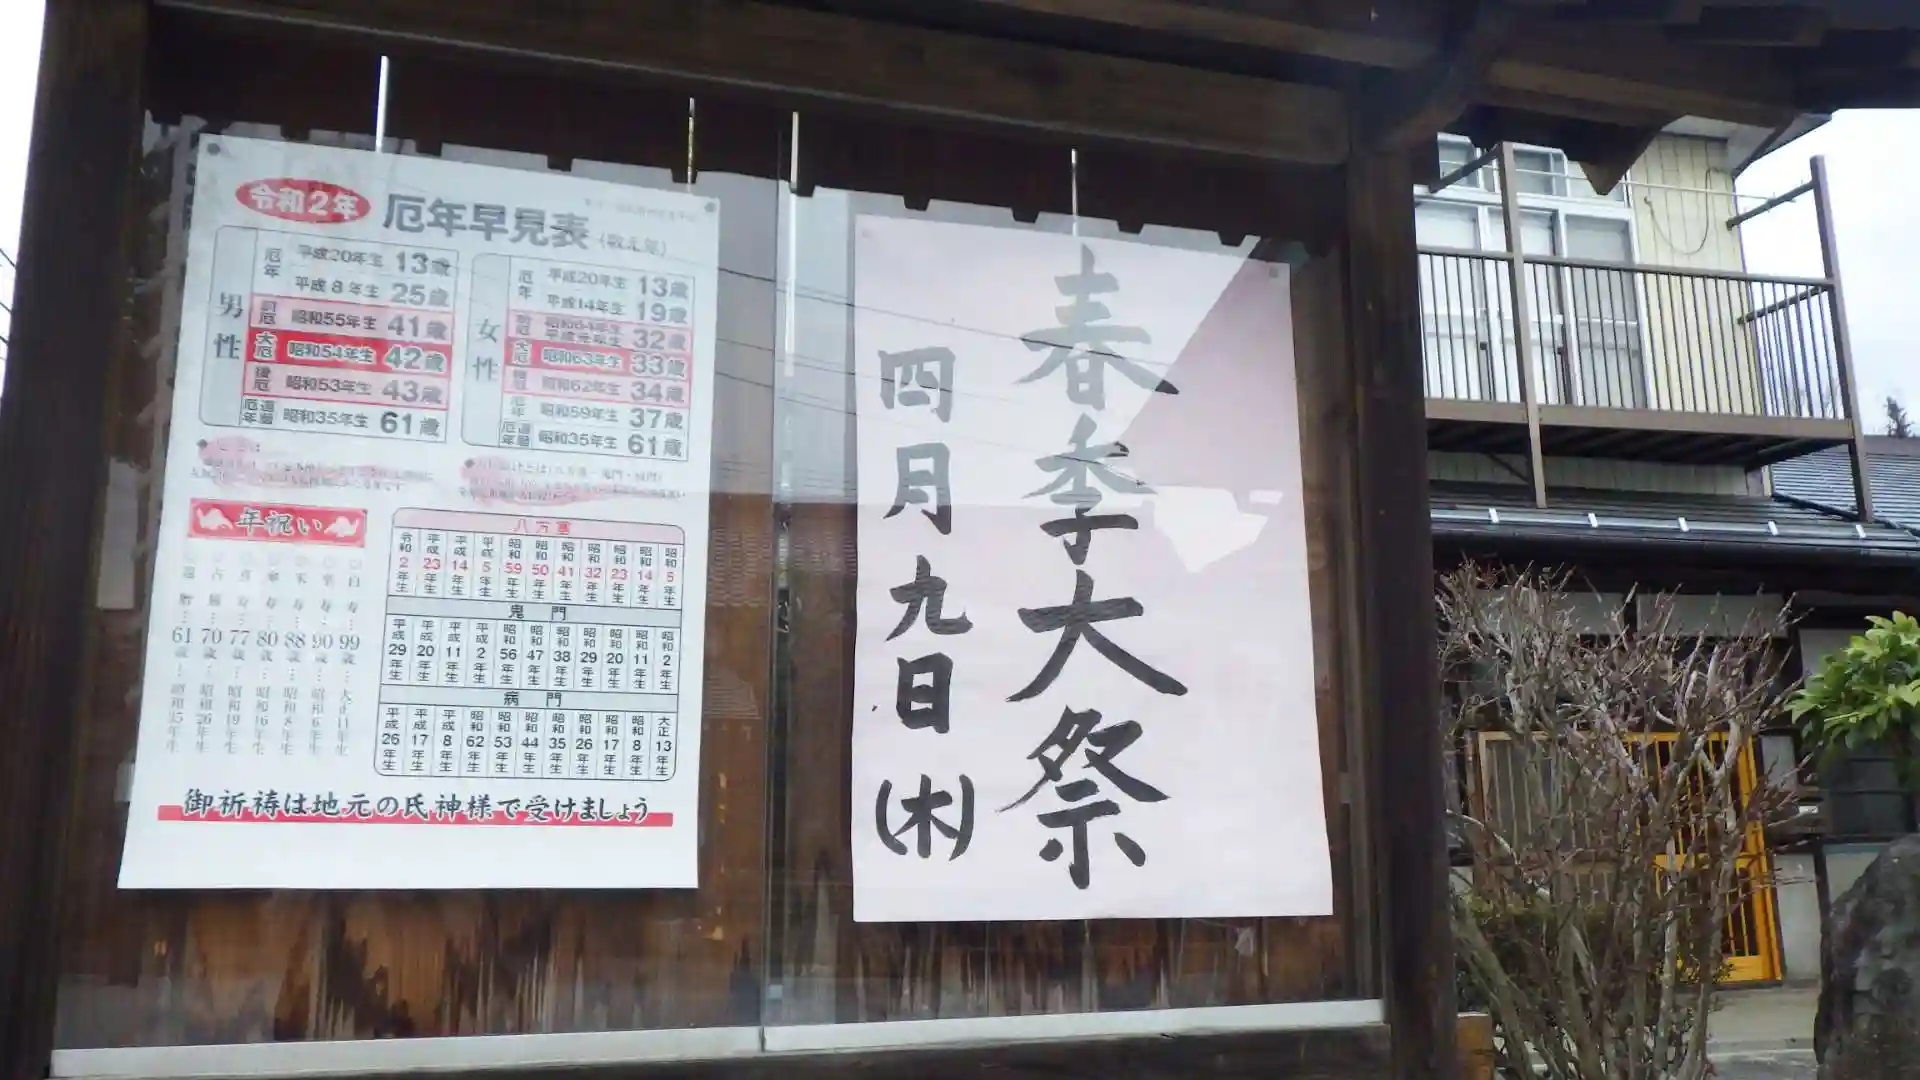 令和2年 厄年早見表 (数え年)
男性
厄年 平成20年生 13歳
平成8年生 25歳
前厄 昭和55年生 41歳
大厄 昭和54年生 42歳
後厄 昭和53年生 43歳
厄年 還暦 昭和35年生 61歳
女性
厄年 平成20年生 13歳
平成14年生 19歳
前厄 昭和64年生 平成元年生 32歳
大厄 昭和63年生 33歳
後厄 昭和62年生 34歳
厄年 昭和59年生 37歳
厄年 還暦 昭和35年生 61歳
年祝い
還暦…61歳…昭和35年生
古稀…70歳…昭和26年生
喜寿…77歳…昭和19年生
傘寿…80歳…昭和16年生
米寿…88歳…昭和8年生
卒寿…90歳…昭和6年生
白寿…99歳…大正11年生
八方塞
令和2年生 平成23年生 平成14年生 平成5年生 昭和59年生 昭和50年生 昭和41年生 昭和32年生 昭和23年生 昭和14年生 昭和5年生
鬼門
平成29年生 平成20年生 平成11年生 平成2年生 昭和56年生 昭和47年生 昭和38年生 昭和29年生 昭和20年生 昭和11年生 昭和2年生
病門
平成26年生 平成17年生 平成8年生 昭和62年生 昭和53年生 昭和44年生 昭和35年生 昭和26年生 昭和17年生 昭和8年生 大正13年生
御祈祷は地元の氏神様で受けましょう
春季大祭
四月九日(木)